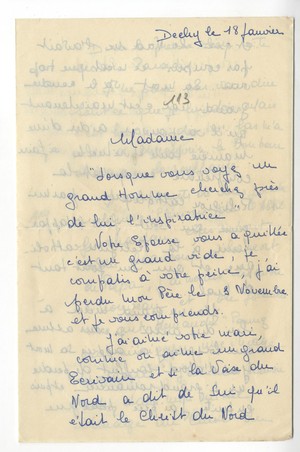 Dechy le 18 Janvier
113
Madame
"Lorsque vous voyez un
grand Homme cherchez près
de lui l'inspiratrice
Votre Epoux vous a quittée
c'est un grand vide, je
compatis à votre peine, j'ai
perdu mon Père le 3 Novembre
et je vous comprends.
J'ai aimé votre mari,
comme on aime un grand
Ecrivain et si la Voix du
Nord a dit de Lui qu'il
était le Christ du Nord